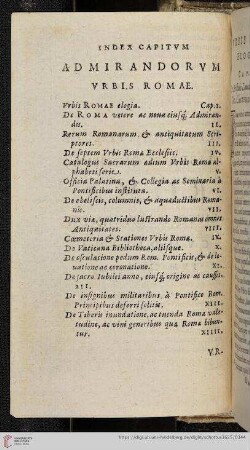 INDEX CAPITVM
ADMIRANDORVM
VRBIS ROMAE.
Vrbis ROMAE elogia. Cap.I.
De ROMA vetere ac noua eiusq; Admiran-
dis. II.
Rerum Romanarum, & antiquitatum Scri-
ptores. III.
De septem Vrbis Roma Ecclesiis. IV.
Catalogus Sacrarum adium Vrbis Roma al-
phabeti serie. V.
Officia Palatina, & Collegia ac Seminaria à
Pontificibus instituta. VI.
De obeliscis, columnis, & aquaductibus Roma-
nis. VII.
Dua via, quatriduo lustrando Romanas omnes
Antiquitates. VIII.
Cœmeteria & Stationes Vrbis Roma. IX.
De Vaticana Bibliotheca, aliisque. X.
De osculatione pedum Rom. Pontificis, & de le-
uatione ac coronatione. XI.
De sacro Iubilei anno, eiusq; origine ac causis.
XII.
De insignibus militaribus, à Pontifice Rom.
Principibus deferri solitis. XIII.
De Tiberis inundatione, ac tuenda Roma vale-
tudine, ac vini generibus qua Roma bibun-
tur. XIIII.
VR.